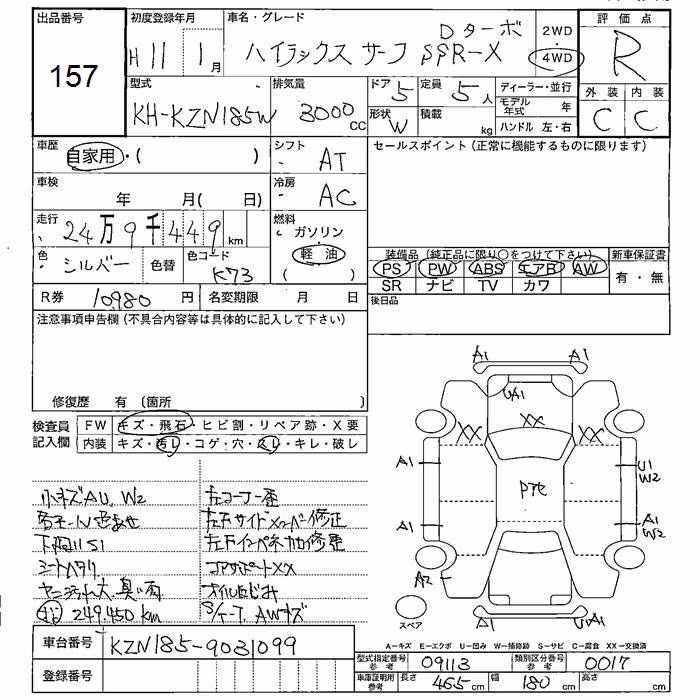 出品番号
157
初度登録年月
H 11 年 1月
車名・グレード
ハイラックス サーフ SSR-X
Dターボ
2WD
4WD
評価点
R
外装 内装
C C
型式
KH-KZN185W
排気量
3000 cc
ドア
5
定員
5人
形状
W
積載
kg
ディーラー・並行
モデル年式 年
ハンドル 左・右
車歴
自家用・( )
シフト
AT
セールスポイント(正常に機能するものに限ります)
車検
年 月( 日)
冷房
AC
走行
24万9千449 km
燃料
ガソリン
軽油
( )
色
シルバー
色替
色コード
K73
装備品(純正品に限り○をつけて下さい)
新車保証書
PS PW ABS エアB AW
SR ナビ TV カワ
有・無
R券 10980 円
名変期限 月 日
後日品
注意事項申告欄(不具合内容等は具体的に記入して下さい)
修復歴 有(箇所 )
検査員記入欄
FW キズ・飛石・ヒビ割・リペア跡・X要
内装 キズ・汚レ・コゲ・穴・スレ・キレ・破レ
小キズAU, W2
各モール色あせ
下廻りS1
シートヘタリ
ヤニ汚れ大、臭い有
249,450 km
左コーナー歪
左Fサイドメンバー修正
左Fインパネ加修歪
コアサポートXX
オイルにじみ
S/ケース, AWキズ
A1 A1
UA1
XX
XX XX
A1
U1
W2
Pガセ
A1
A1
W2
A2
A1 UA1
スペア
A=キズ E=エクボ U=凹み W=補修跡 S=サビ C=腐食 XX=交換済
車台番号
KZN185-9031099
登録番号
型式指定番号 参考
09113
類別区分番号 参考
0017
車庫証明用 参考
長さ 465 cm
幅 180 cm
高さ cm